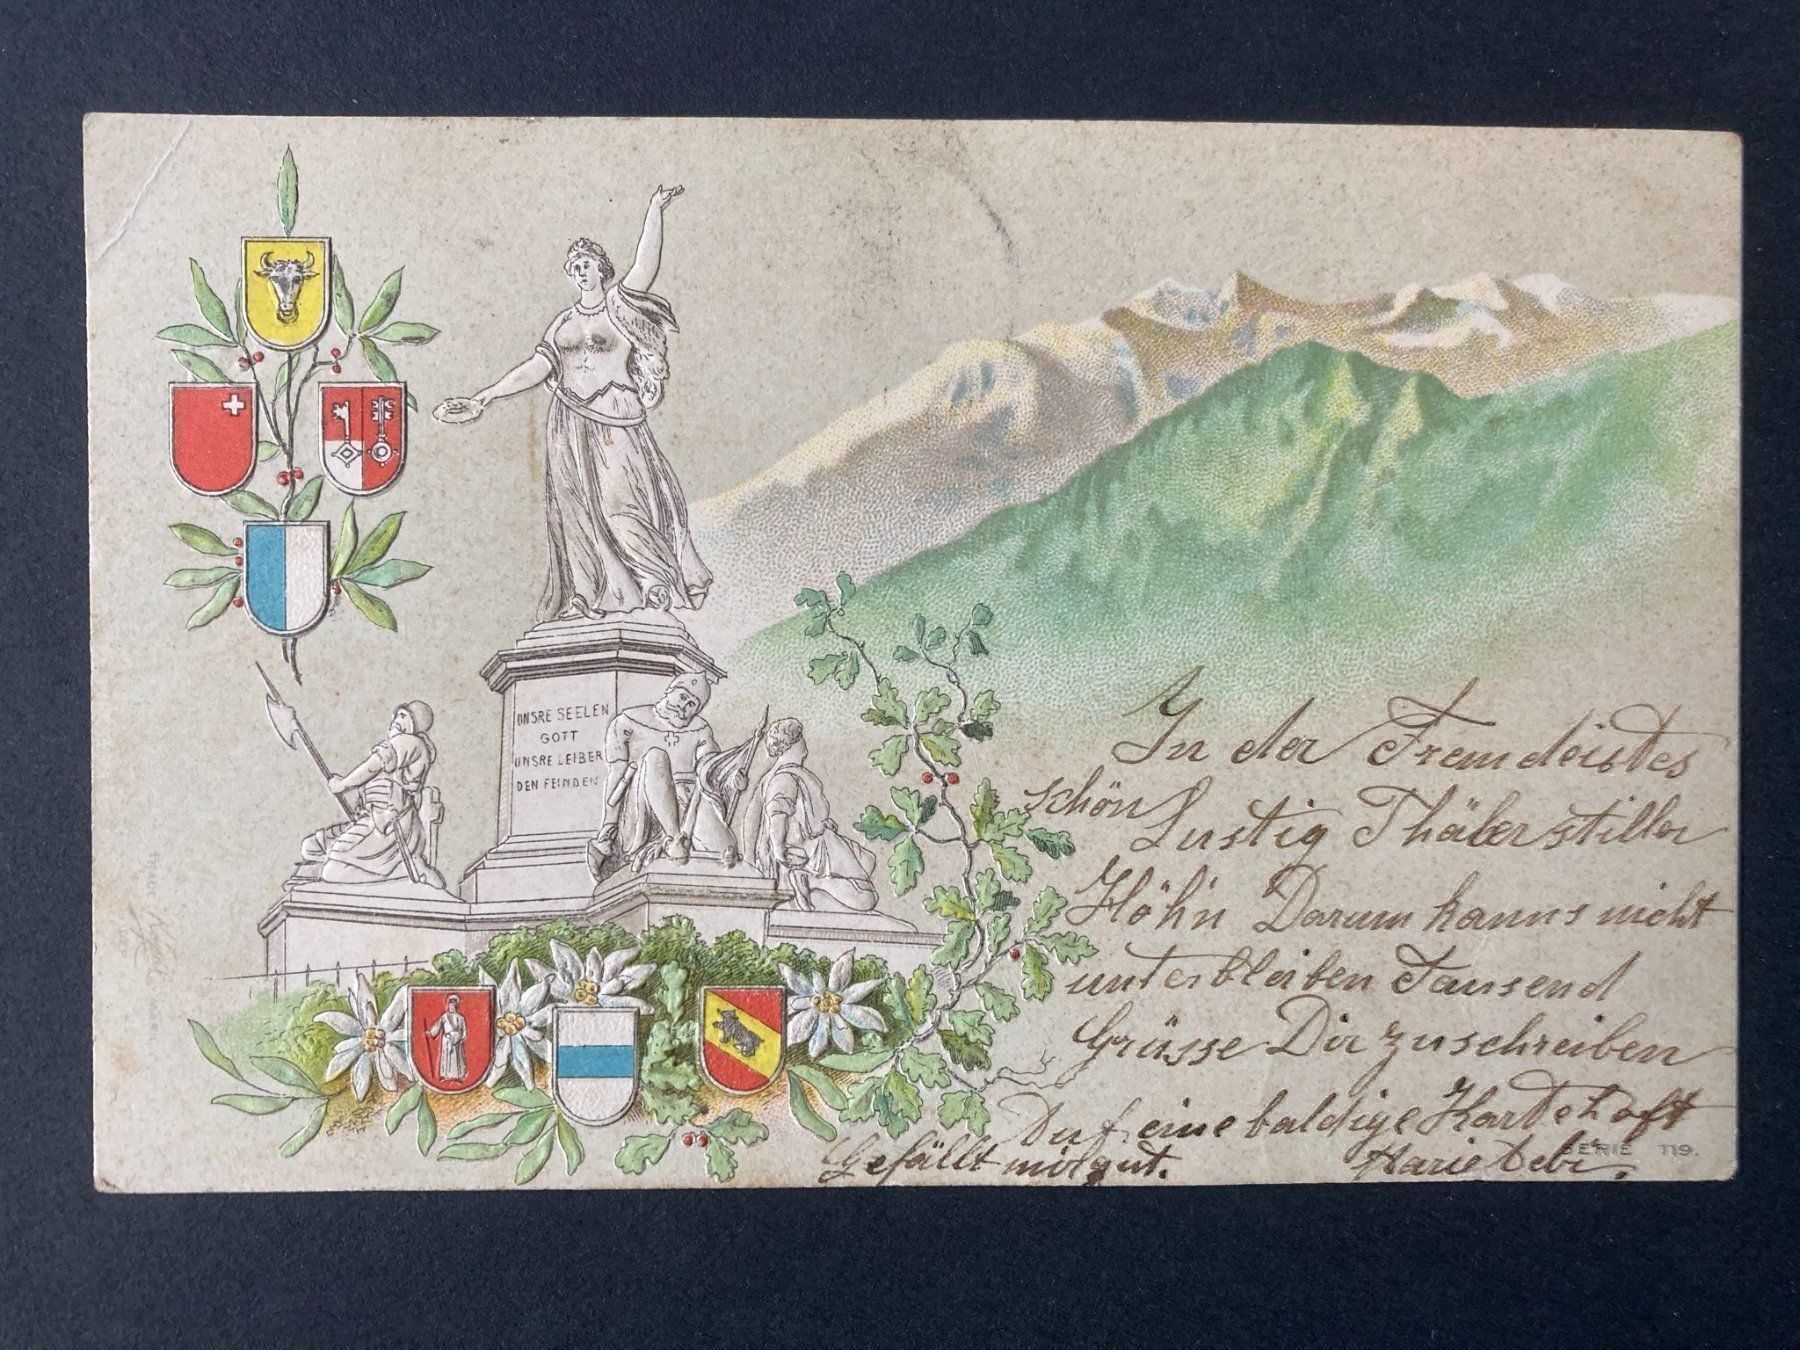 UNSRE SEELEN
GOTT
UNSRE LEIBER
DEN FEINDEN
In der Fremdeistes
schön Lustig Thäler stiller
Höh'n Darum kanns nicht
unterbleiben Tausend
Grüsse Dir zu schreiben
Auf eine baldige Karte hofft
Gefällt mir gut. Marie Aebi.
SERIE 119.